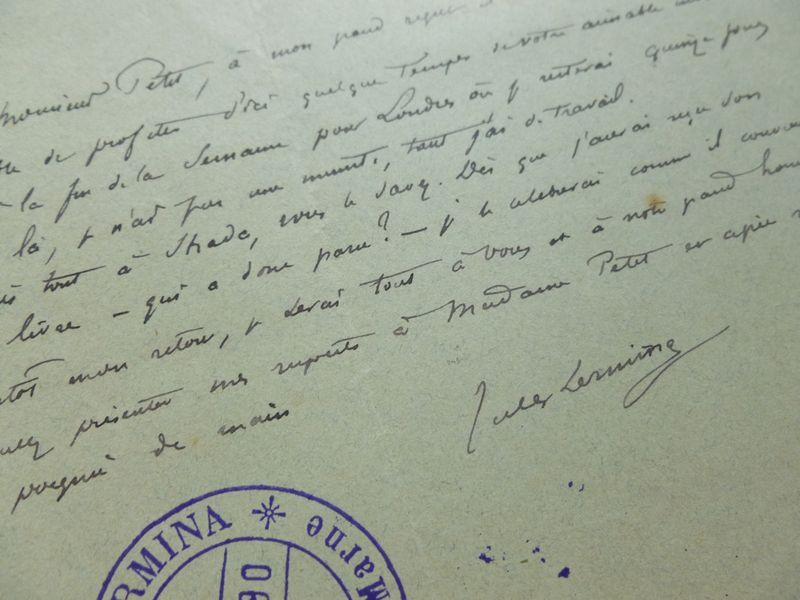 Monsieur Petit, à mon grand regret
de profiter d'ici quelque temps de votre aimable
la fin de la semaine pour Londres où je resterai quinze jours
là, je n'ai pas une minute, tant j'ai de travail.
tout à Strada, vous le savez. Dès que j'aurai reçu son
livre – qui a donc paru? – je le célébrerai comme il
mon retour, je serai tout à vous et à notre grand
présenter mes respects à Madame Petit et
poignée de main
Jules Lermina
RMINA * Marne
90